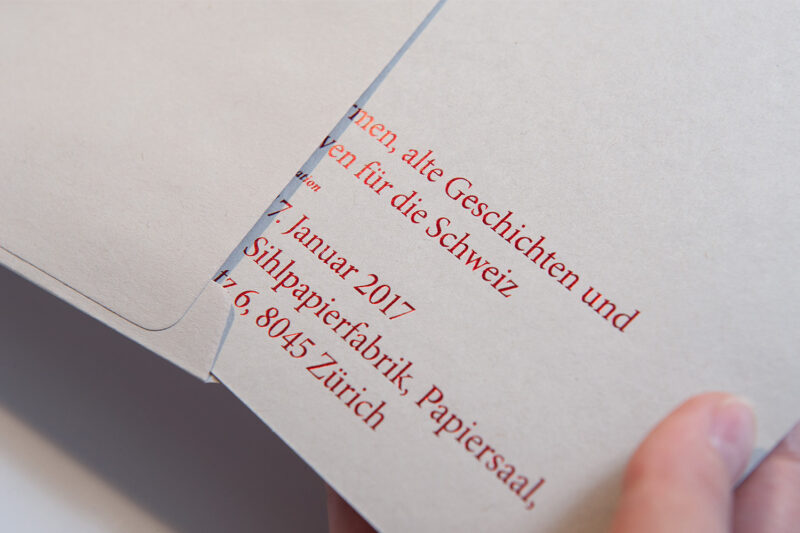 rmen, alte Geschichten und
ven für die Schweiz
ation
7. Januar 2017
Sihlpapierfabrik, Papiersaal,
tz 6, 8045 Zürich